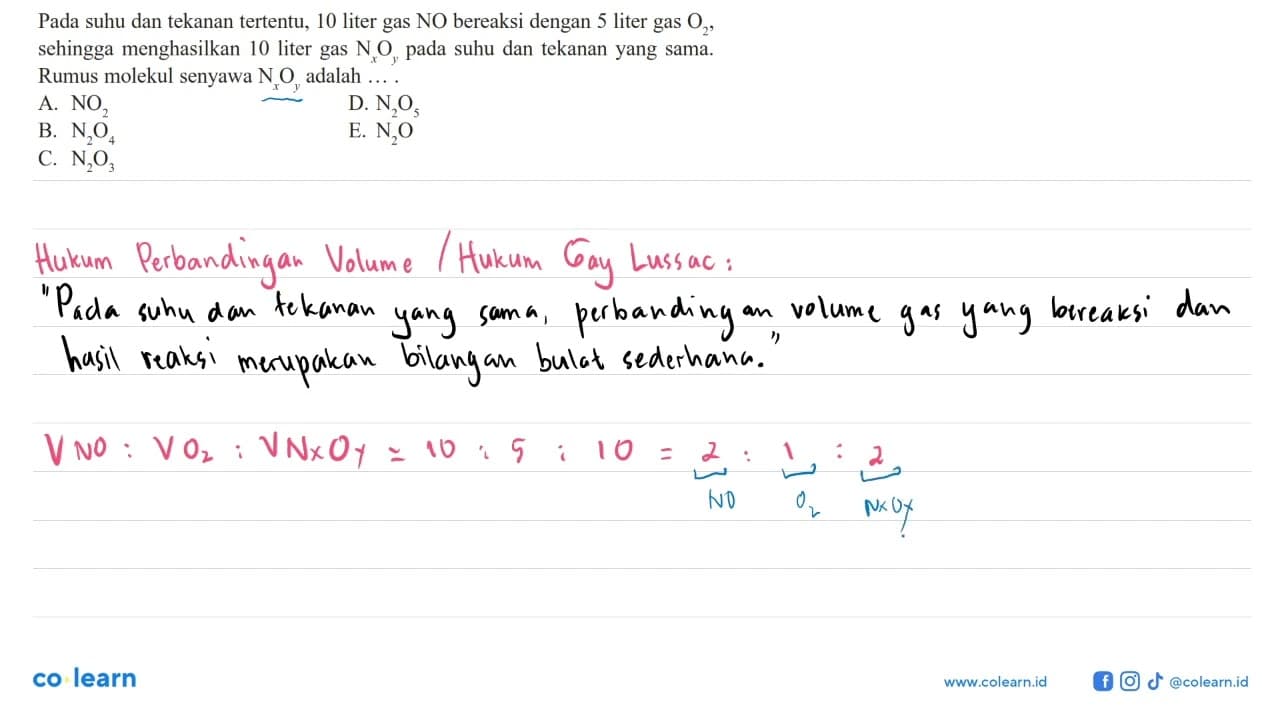 Pada suhu dan tekanan tertentu, 10 liter gas NO bereaksi dengan 5 liter gas O₂,
sehingga menghasilkan 10 liter gas NₓOᵧ pada suhu dan tekanan yang sama.
Rumus molekul senyawa NₓOᵧ adalah ... .
A. NO₂
D. N₂O₅
B. N₂O₄
E. N₂O
C. N₂O₃
Hukum Perbandingan Volume / Hukum Gay Lussac :
"Pada suhu dan tekanan yang sama, perbandingan volume gas yang bereaksi dan
hasil reaksi merupakan bilangan bulat sederhana."
V NO : V O₂ : V NxOy = 10 : 5 : 10 = 2 : 1 : 2
NO O₂ NxOy
co learn
www.colearn.id
@colearn.id